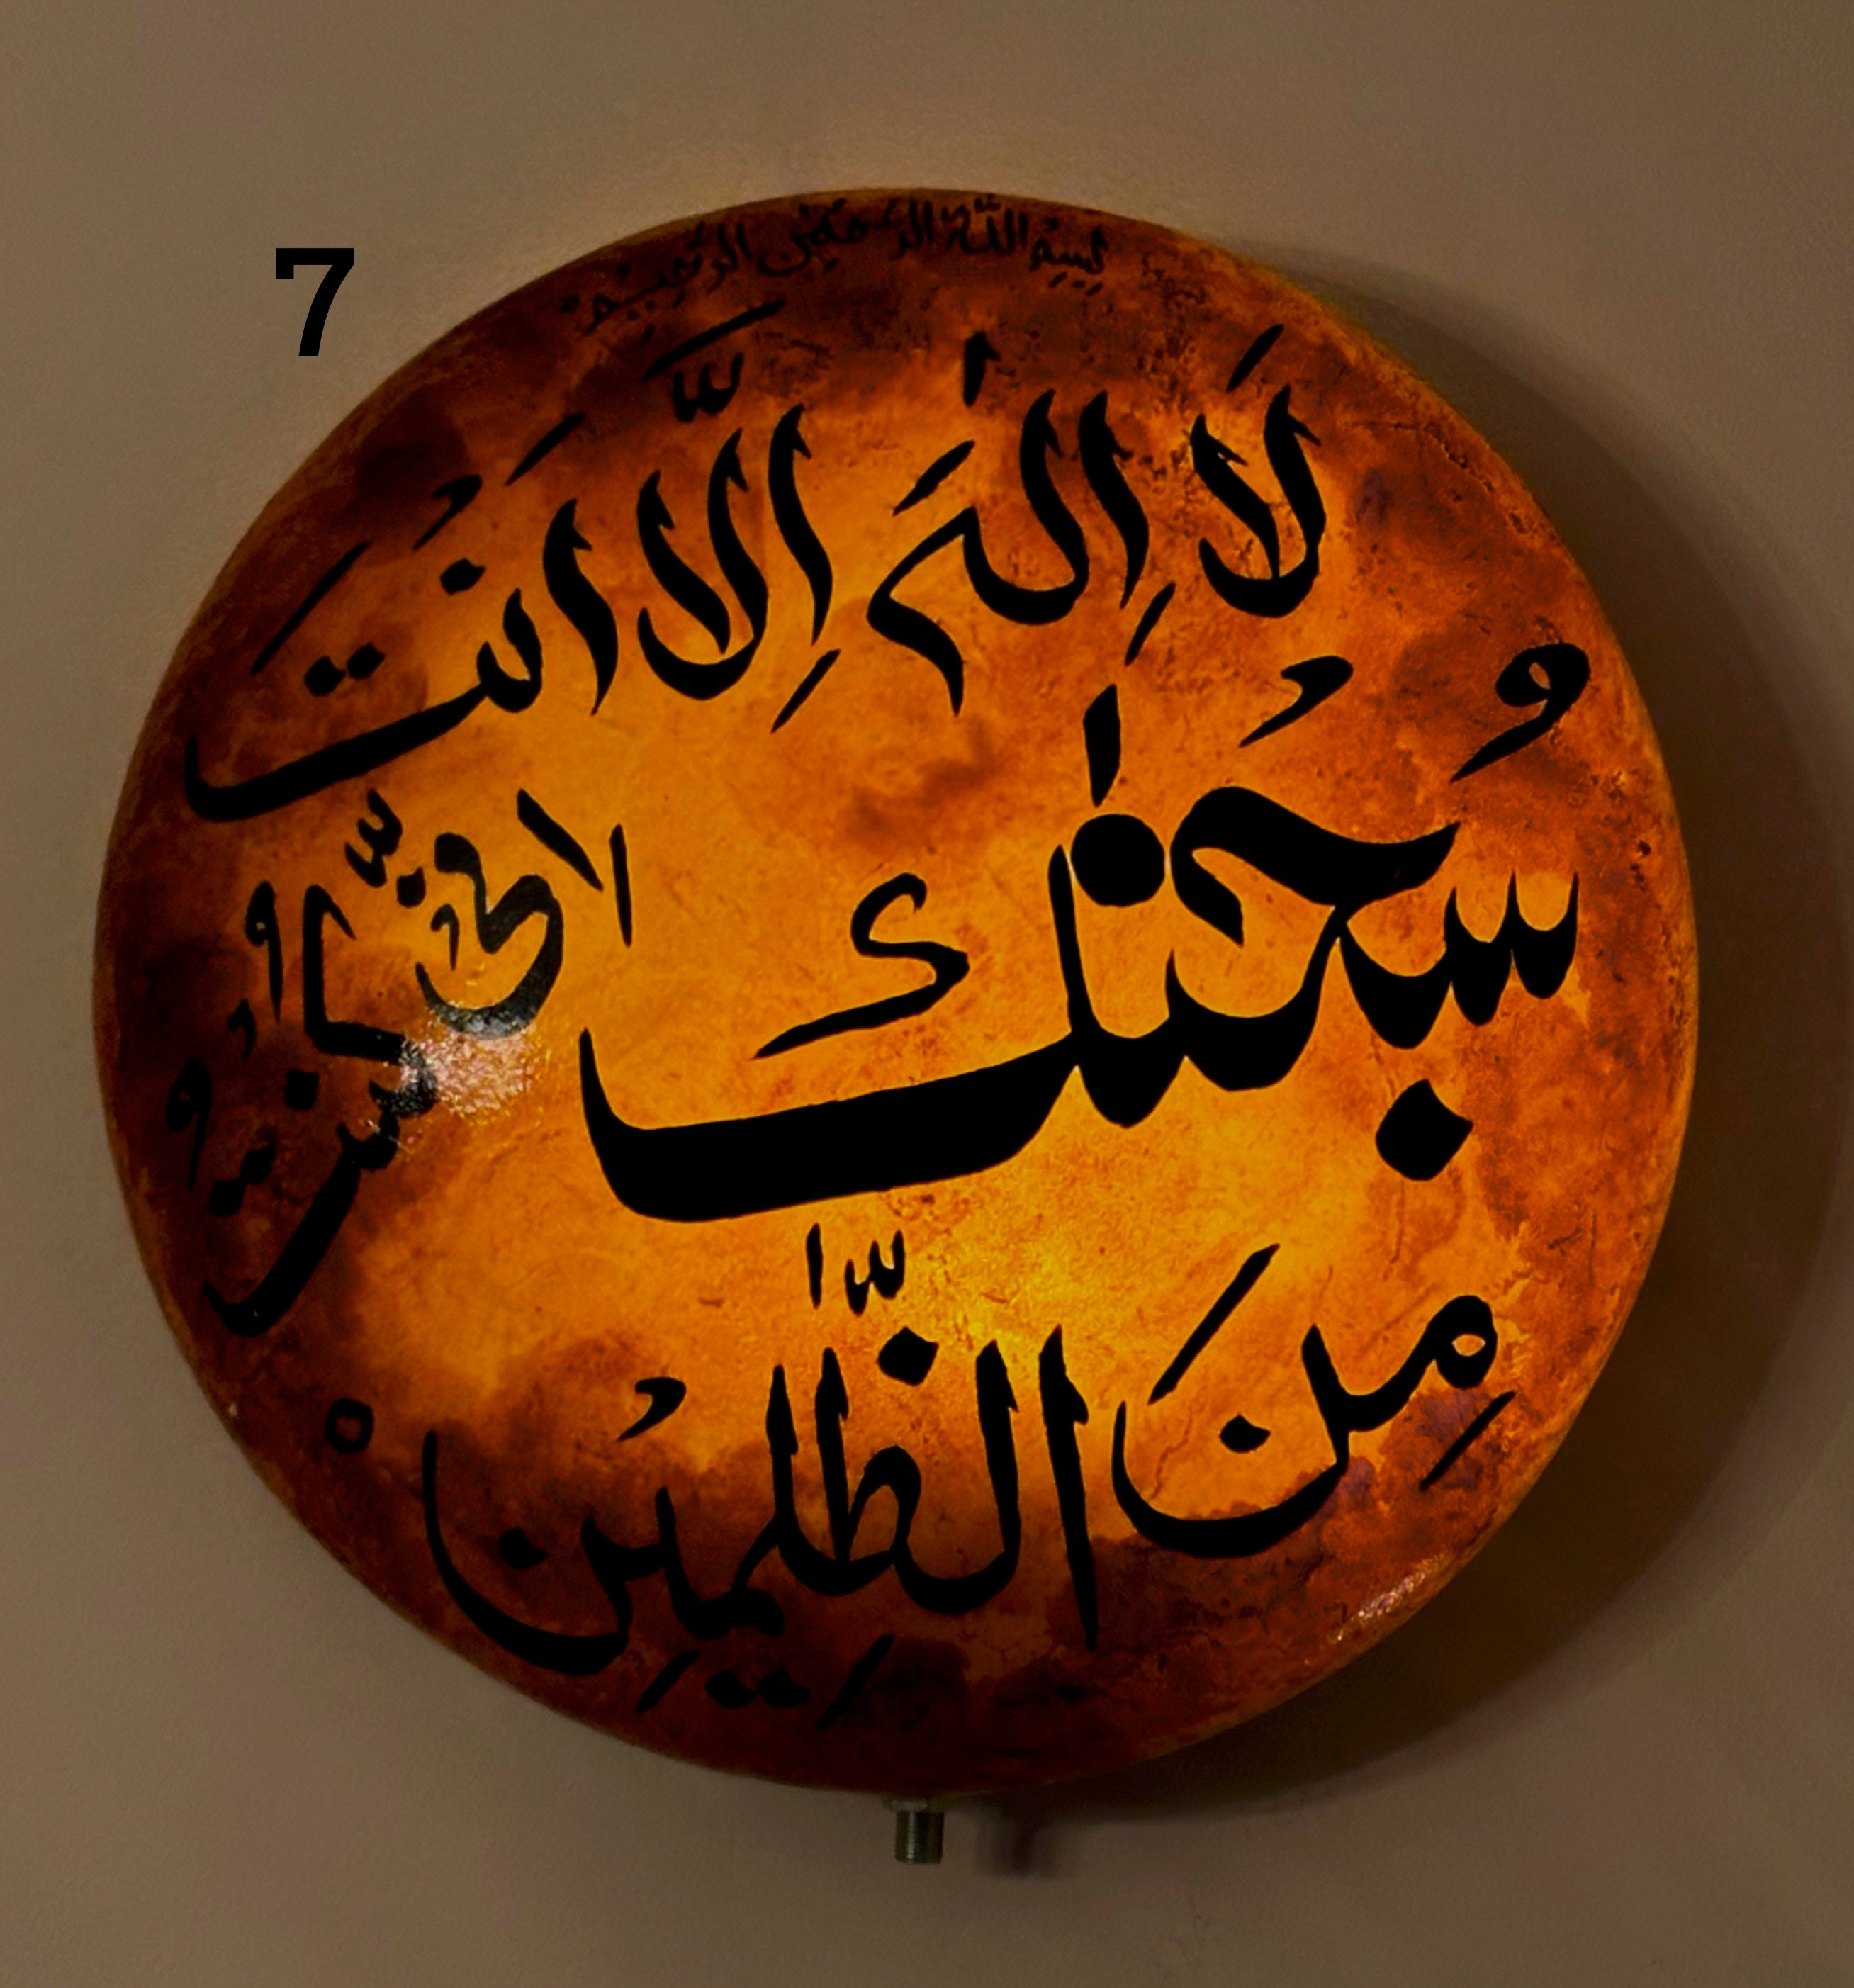 7
بِسْمِ اللّٰهِ الرَّحْمٰنِ الرَّحِيْمِ
لَا اِلٰهَ اِلَّا اَنْتَ
سُبْحٰنَكَ اِنِّىْ كُنْتُ
مِنَ الظّٰلِمِيْنَ